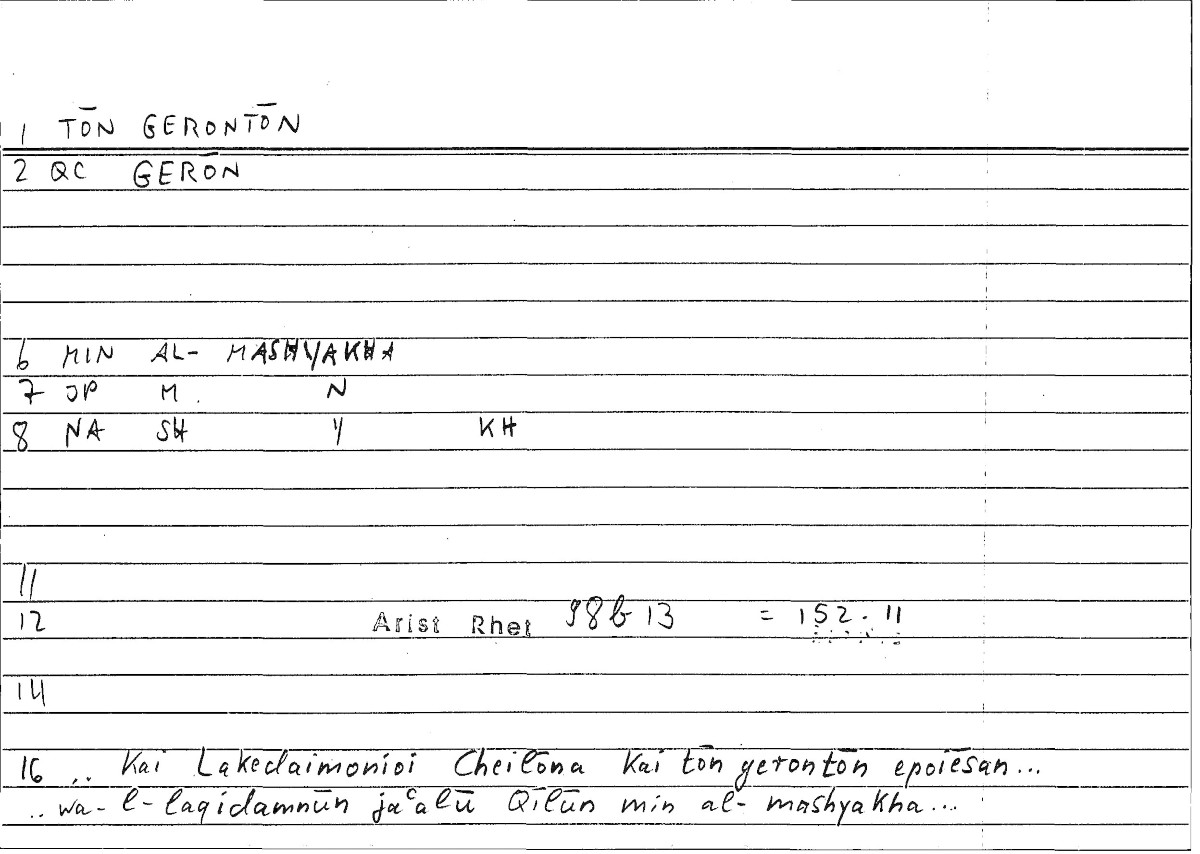 1 TŌN GERONTŌN
2 QC GERŌN
6 MIN AL- MASHYAKHA
7 JP M. N
8 NA SH Y KH
11
12 Arist Rhet 98b13 = 152.11
14
16 .. Kai Lakedaimonioi Cheilōna Kai tōn gerontōn epoiēsan...
.. wa-l-laqidamnūn jaʿalū Qīlūn min al-mashyakha...